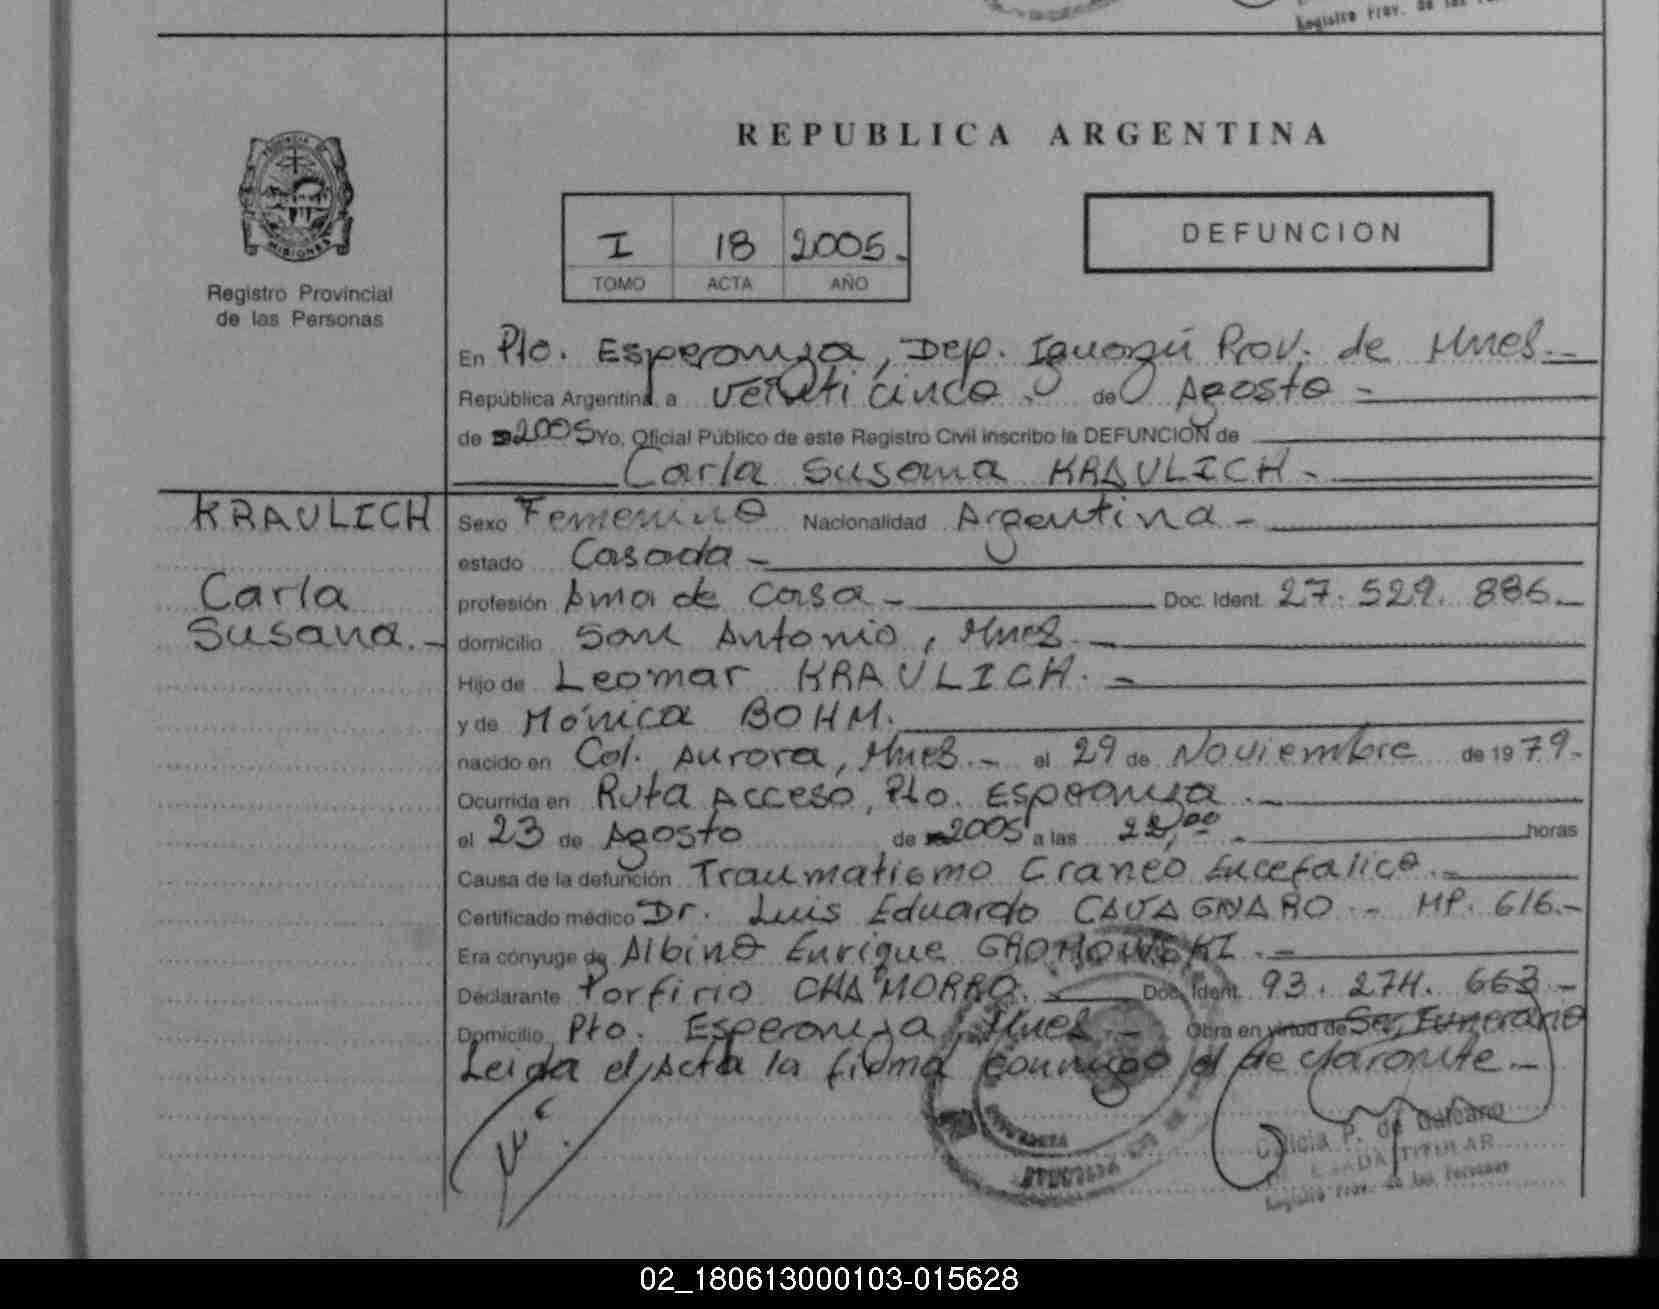 Registro Prov. de las
REPUBLICA ARGENTINA
MISIONES
Registro Provincial
de las Personas
I 18 2005.
TOMO ACTA AÑO
DEFUNCION
En Pto. Esperanza, Dep. Iguazú Prov. de Mnes.-
República Argentina a veinti cinco de Agosto -
de 2005 Yo, Oficial Público de este Registro Civil inscribo la DEFUNCION de
Carla Susana KRAULICH.-
KRAULICH
Carla
Susana.-
Sexo Femenino Nacionalidad Argentina -
estado Casada -
profesión Ama de Casa - Doc. Ident. 27.529.886.-
domicilio San Antonio, Mnes.-
Hijo de Leomar KRAULICH.-
y de Mónica BOHM.
nacido en Col. Aurora, Mnes.- el 29 de Noviembre de 1979.-
Ocurrida en Ruta Acceso, Pto. Esperanza.-
el 23 de Agosto de 2005 a las 22,00 - horas
Causa de la defunción Traumatismo Craneo Encefalico.-
Certificado médico Dr. Luis Eduardo CAVAGNARO.- MP. 616.-
Era cónyuge de Albino Enrique GROMOWSKI.-
Declarante Porfirio CHAMORRO. Doc. Ident. 93.274.663.-
Domicilio Pto. Esperanza, Mnes.- Obra en virtud de Ser, Funerario
Leida el Acta la firma conmigo el declarante.-
P. de Galeano
TITULAR
Registro Prov. de las Personas
02_180613000103-015628